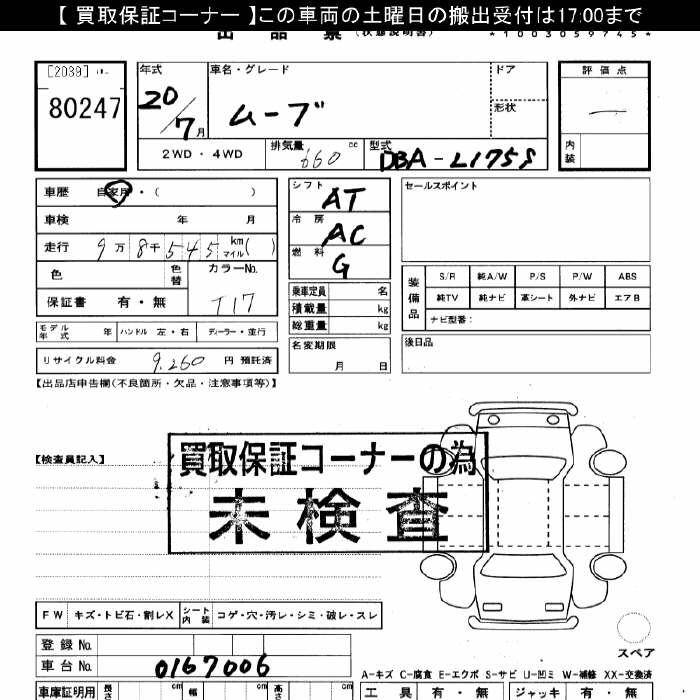 【 買取保証コーナー 】この車両の土曜日の搬出受付は17:00まで
出 品 票 (状態説明書)
*1003059745*
[2039]
80247
年式
20/7月
車名・グレード
ムーブ
ドア
形状
2WD ・ 4WD
排気量 660 cc
型式 DBA-L175S
評 価 点
―
内装
車歴 自家用 ・ ( )
車検 年 月
走行 9万8千545 km マイル ( )
色 色替 カラーNo.
T17
保証書 有 ・ 無
モデル年式 年 ハンドル 左 ・ 右 ディーラー ・ 並行
リサイクル料金 9,260 円 預託済
シフト AT
冷房 AC
燃料 G
乗車定員 名
積載量 kg
総重量 kg
名変期限
月 日
セールスポイント
装備品
S/R 純A/W P/S P/W ABS
純TV 純ナビ 革シート 外ナビ エアB
ナビ型番:
後日品
【出品店申告欄(不良箇所・欠品・注意事項等)】
【検査員記入】
買取保証コーナーの為
未検査
FW キズ・トビ石・割レX シート内装 コゲ・穴・汚レ・シミ・破レ・スレ
スペア
登録 No.
車台 No. 0167006
A-キズ C-腐食 E-エクボ S-サビ U-凹ミ W-補修 XX-交換済
車庫証明用 長さ cm 幅 cm 高さ cm
工 具 有 ・ 無 ジャッキ 有 ・ 無